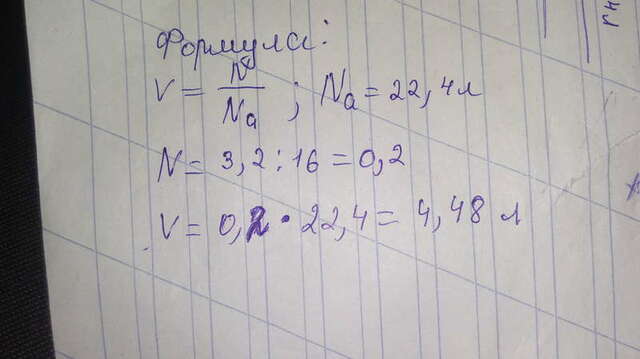 Формула:
V = N / Na ; Na = 22,4 л
N = 3,2 : 16 = 0,2
V = 0,2 · 22,4 = 4,48 л